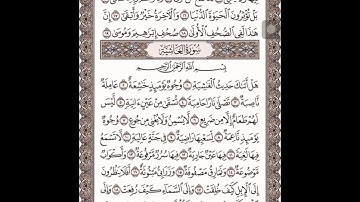 بَلْ تُؤْثِرُونَ الْحَيَوٰةَ الدُّنْيَا ۝١٦ وَالْآخِرَةُ خَيْرٌ وَأَبْقَىٰ ۝١٧ إِنَّ
هَٰذَا لَفِي الصُّحُفِ الْأُولَىٰ ۝١٨ صُحُفِ إِبْرَٰهِيمَ وَمُوسَىٰ ۝١٩
سُورَةُ الْغَاشِيَةِ
بِسْمِ اللَّهِ الرَّحْمَٰنِ الرَّحِيمِ
هَلْ أَتَىٰكَ حَدِيثُ الْغَٰشِيَةِ ۝١ وُجُوهٌ يَوْمَئِذٍ خَٰشِعَةٌ ۝٢ عَامِلَةٌ
نَّاصِبَةٌ ۝٣ تَصْلَىٰ نَارًا حَامِيَةً ۝٤ تُسْقَىٰ مِنْ عَيْنٍ ءَانِيَةٍ ۝٥ لَّيْسَ
لَهُمْ طَعَامٌ إِلَّا مِن ضَرِيعٍ ۝٦ لَّا يُسْمِنُ وَلَا يُغْنِي مِن جُوعٍ ۝٧ وُجُوهٌ
يَوْمَئِذٍ نَّاعِمَةٌ ۝٨ لِّسَعْيِهَا رَاضِيَةٌ ۝٩ فِي جَنَّةٍ عَالِيَةٍ ۝١٠ لَّا تَسْمَعُ
فِيهَا لَٰغِيَةً ۝١١ فِيهَا عَيْنٌ جَارِيَةٌ ۝١٢ فِيهَا سُرُرٌ مَّرْفُوعَةٌ ۝١٣ وَأَكْوَابٌ
مَّوْضُوعَةٌ ۝١٤ وَنَمَارِقُ مَصْفُوفَةٌ ۝١٥ وَزَرَابِيُّ مَبْثُوثَةٌ ۝١٦ أَفَلَا يَنظُرُونَ
إِلَى الْإِبِلِ كَيْفَ خُلِقَتْ ۝١٧ وَإِلَى السَّمَاءِ كَيْفَ رُفِعَتْ ۝١٨